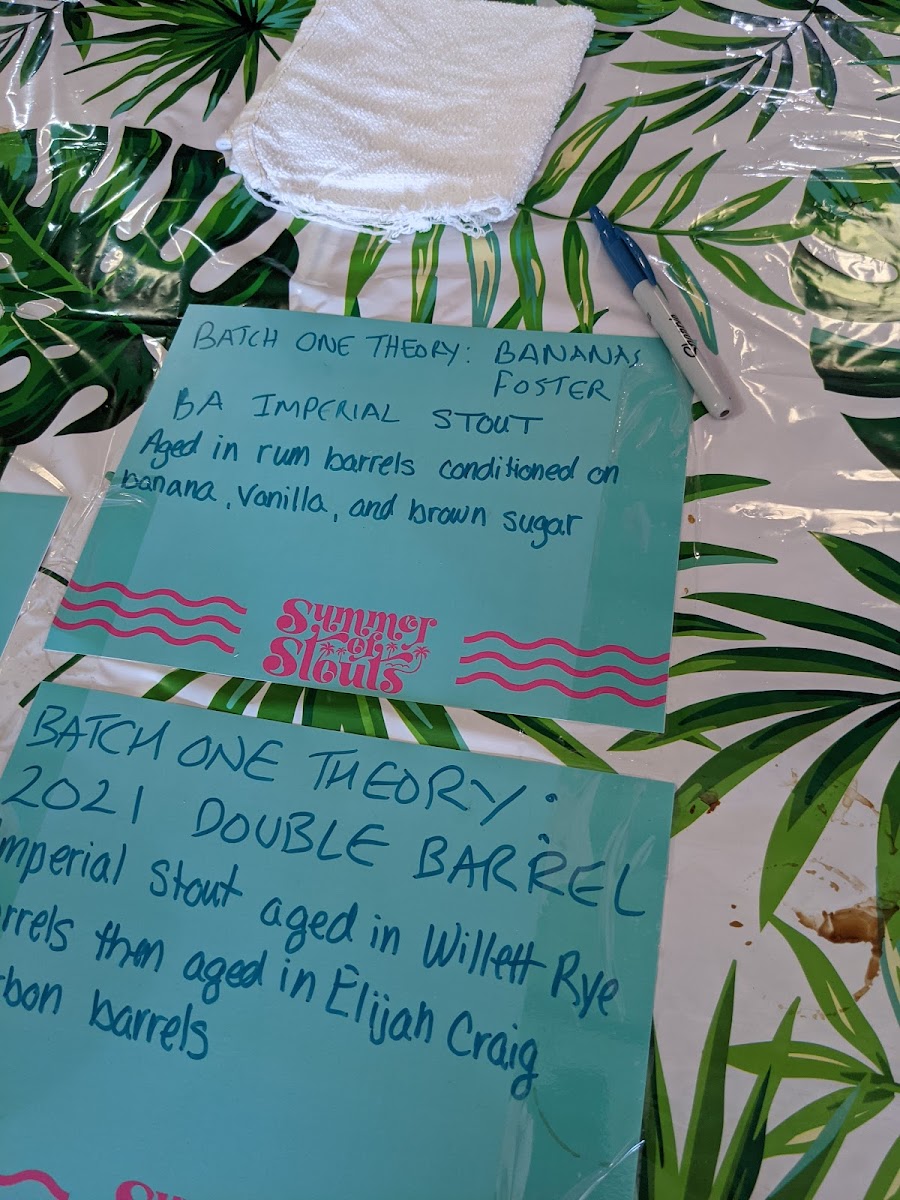 BATCH ONE THEORY: BANANAS
FOSTER
BA IMPERIAL STOUT
Aged in rum barrels conditioned on
banana, vanilla, and brown sugar
Summer
of
Stouts
Sharpie
BATCH ONE THEORY:
2021 DOUBLE BARREL
Imperial Stout aged in Willett Rye
rrels then aged in Elijah Craig
rbon barrels